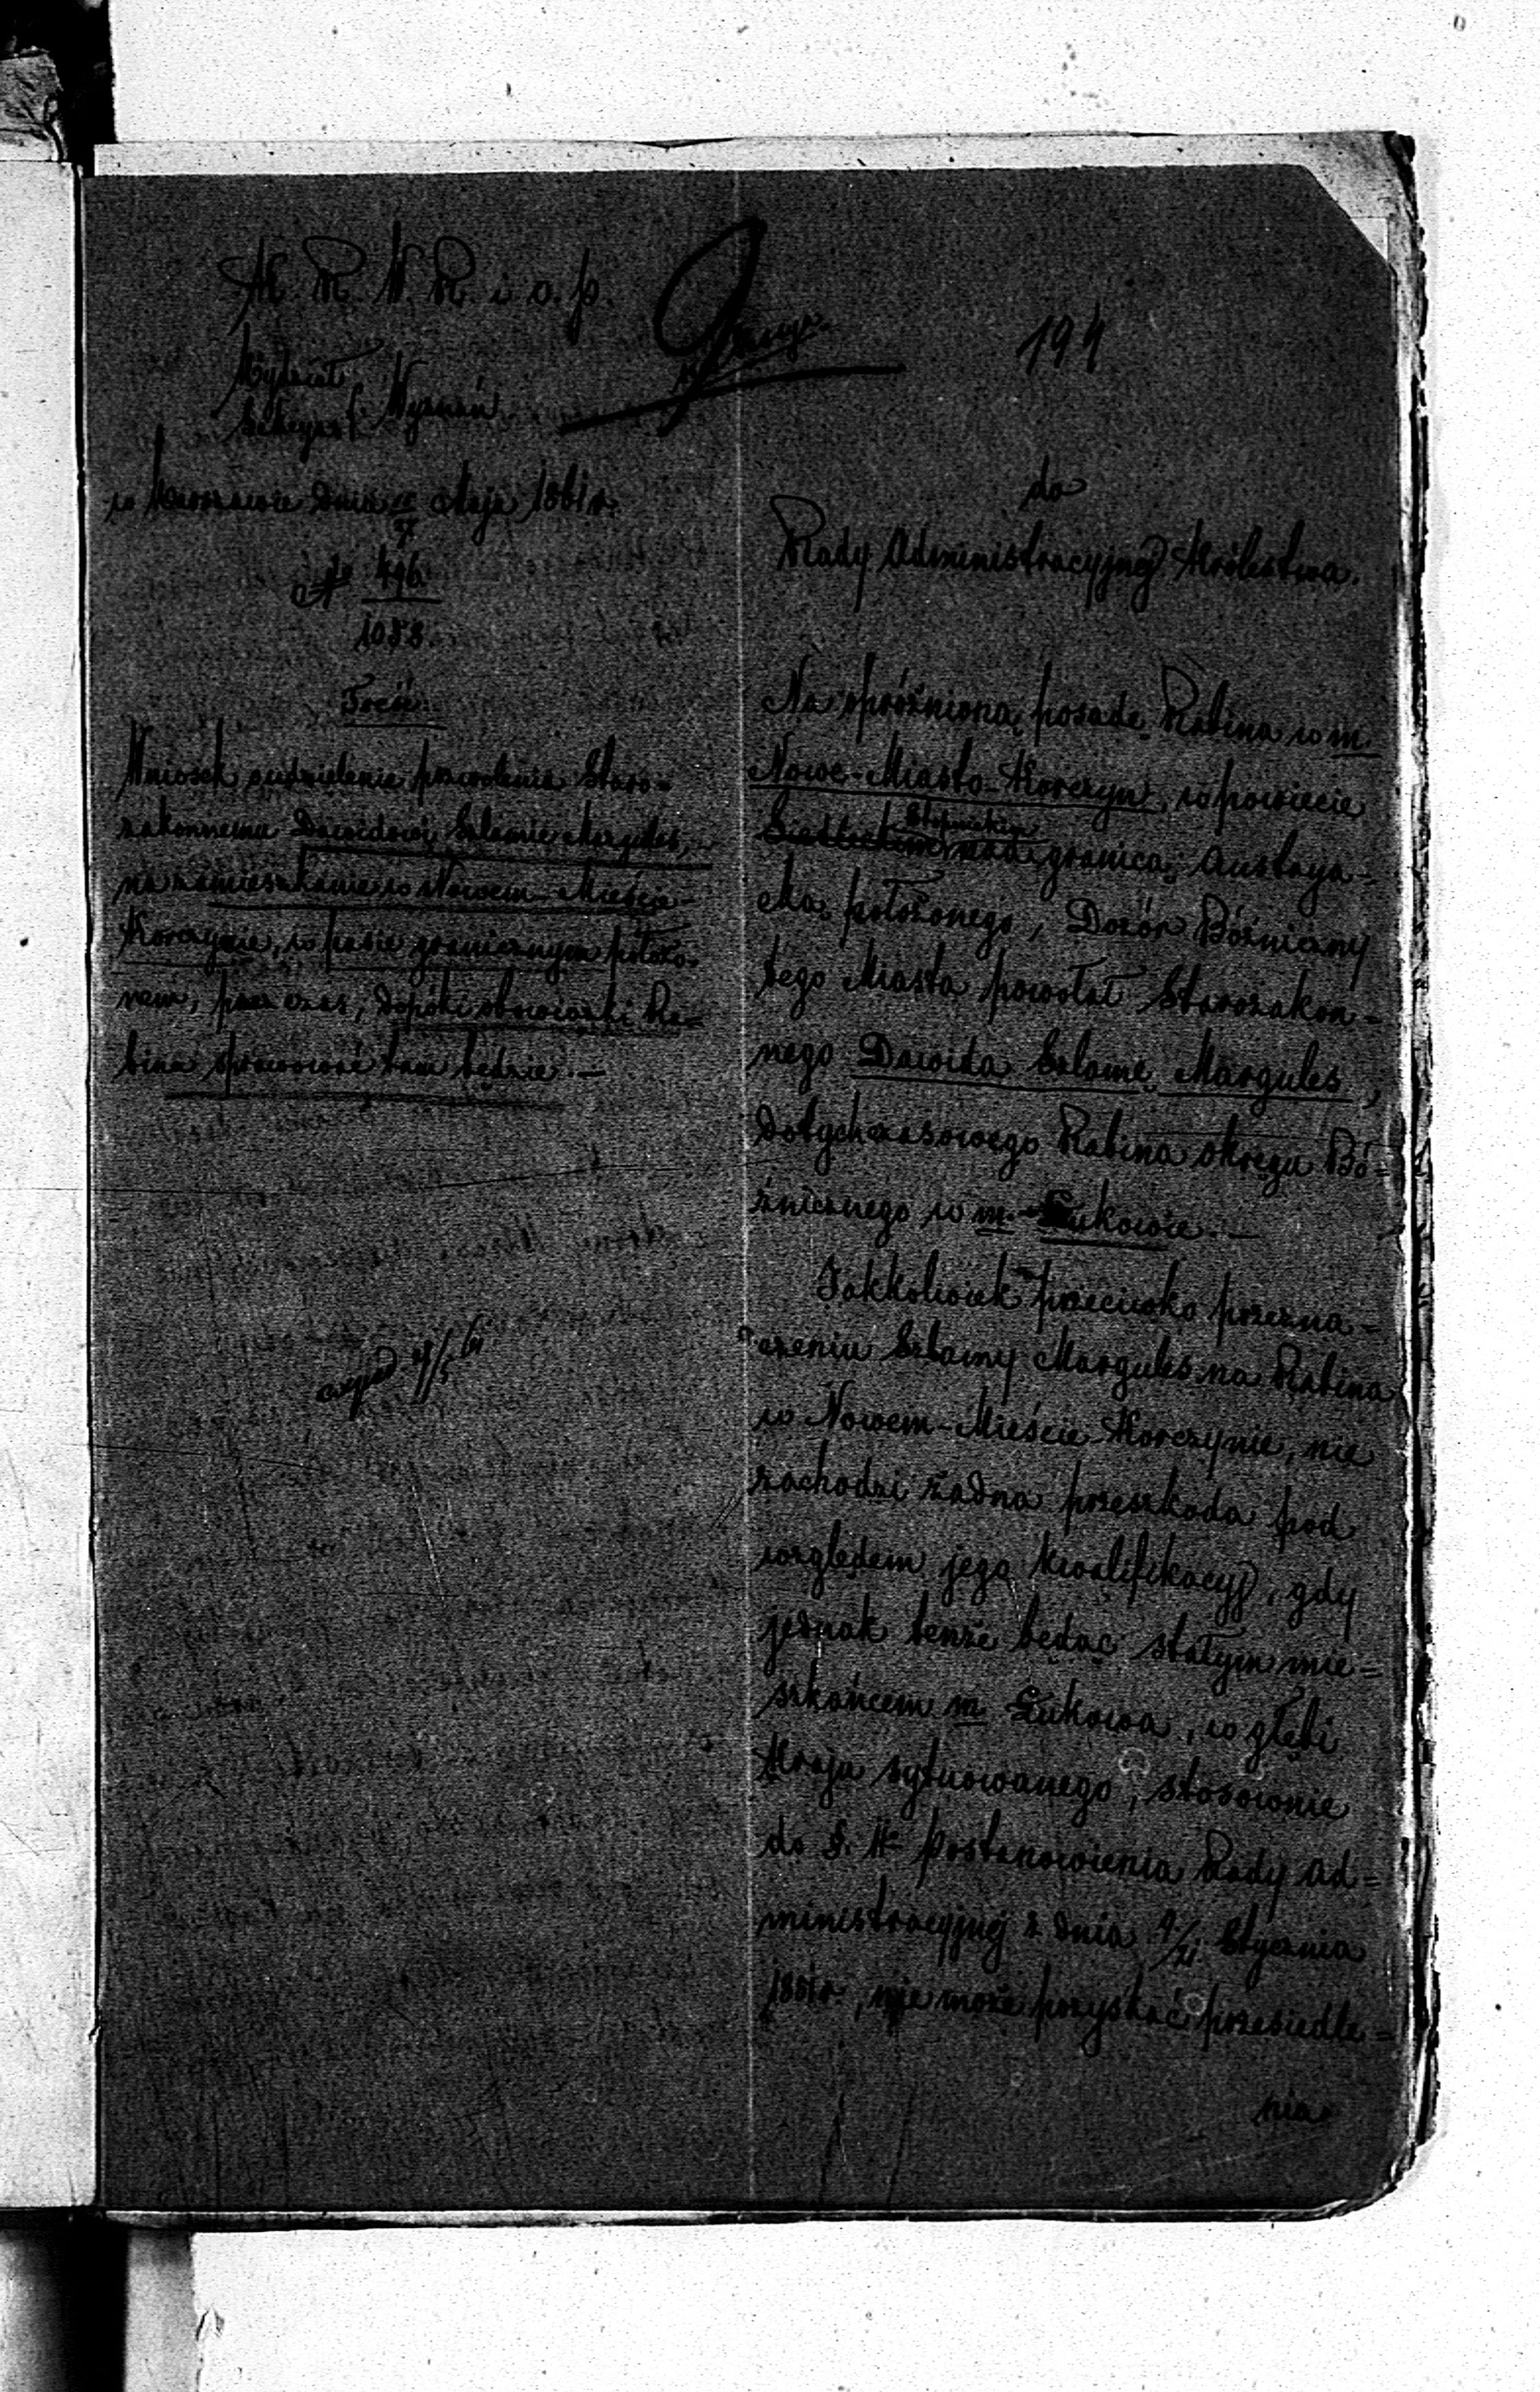 K. R. W. R. i O. P.
Wydział
Sekcya Wyznań
w Warszawie dnia 15/27 Maja 1861 r.
№ 496
1088.
Treść:
Wniosek o udzielenie pozwolenia Staro-
zakonnemu Dawidowi Szlamie Margules,
na zamieszkanie w Nowem-Mieście-
Korczynie, w pasie granicznym położo-
nem, przez czas, dopóki obowiązki Ra-
bina sprawować tam będzie.—
194
do
Rady Administracyjnej Królestwa.
Na opróżnioną posadę Rabina w m.
Nowe-Miasto-Korczyn, w powiecie
Stopnickim
nad granicą Austrya-
cką położonego, Dozór Bóżniczny
tego Miasta powołał Starozakon-
nego Dawida Szlamę Margules,
dotychczasowego Rabina okręgu Bó-
żnicznego w m. Łukowie.—
Jakkolwiek przeciwko przezna-
czeniu Szlamy Margules na Rabina
w Nowem-Mieście-Korczynie, nie
zachodzi żadna przeszkoda pod
względem jego kwalifikacyj, gdy
jednak tenże będąc stałym mie-
szkańcem m. Łukowa, w głębi
Kraju sytuowanego, stosownie
do §. postanowienia Rady Ad-
ministracyjnej z dnia 9/21 Stycznia
nie może pozyskać przesiedle-
nia